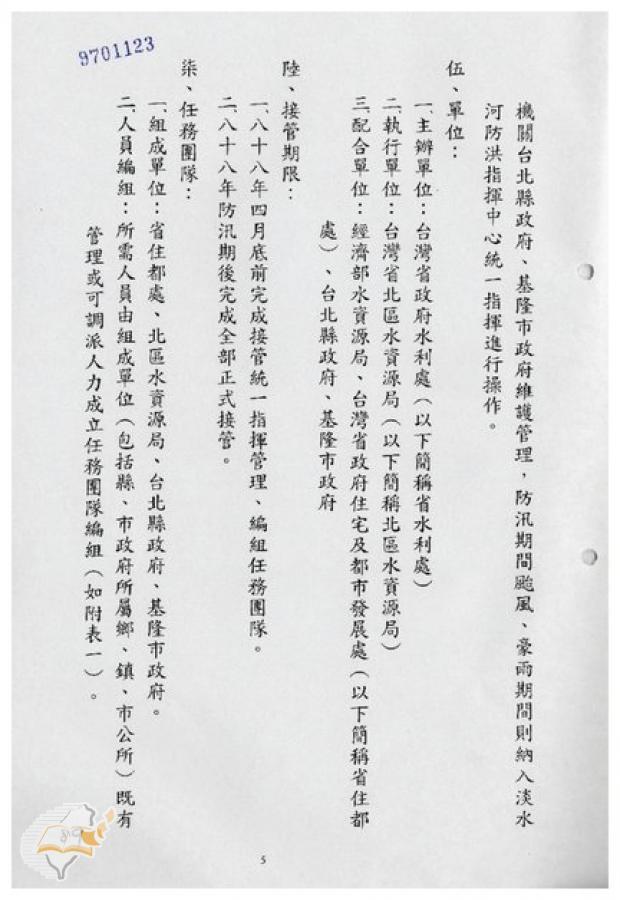 9701123
機關台北縣政府、基隆市政府維護管理，防汛期間颱風、豪雨期間則納入淡水
河防洪指揮中心統一指揮進行操作。
伍、單位：
一、主辦單位：台灣省政府水利處（以下簡稱省水利處）
二、執行單位：台灣省北區水資源局（以下簡稱北區水資源局）
三、配合單位：經濟部水資源局、台灣省政府住宅及都市發展處（以下簡稱省住都
處）、台北縣政府、基隆市政府
陸、接管期限：
一、八十八年四月底前完成接管統一指揮管理、編組任務團隊。
二、八十八年防汛期後完成全部正式接管。
柒、任務團隊：
一、組成單位：省住都處、北區水資源局、台北縣政府、基隆市政府。
二、人員編組：所需人員由組成單位（包括縣、市政府所屬鄉、鎮、市公所）既有
管理或可調派人力成立任務團隊編組（如附表一）。
5